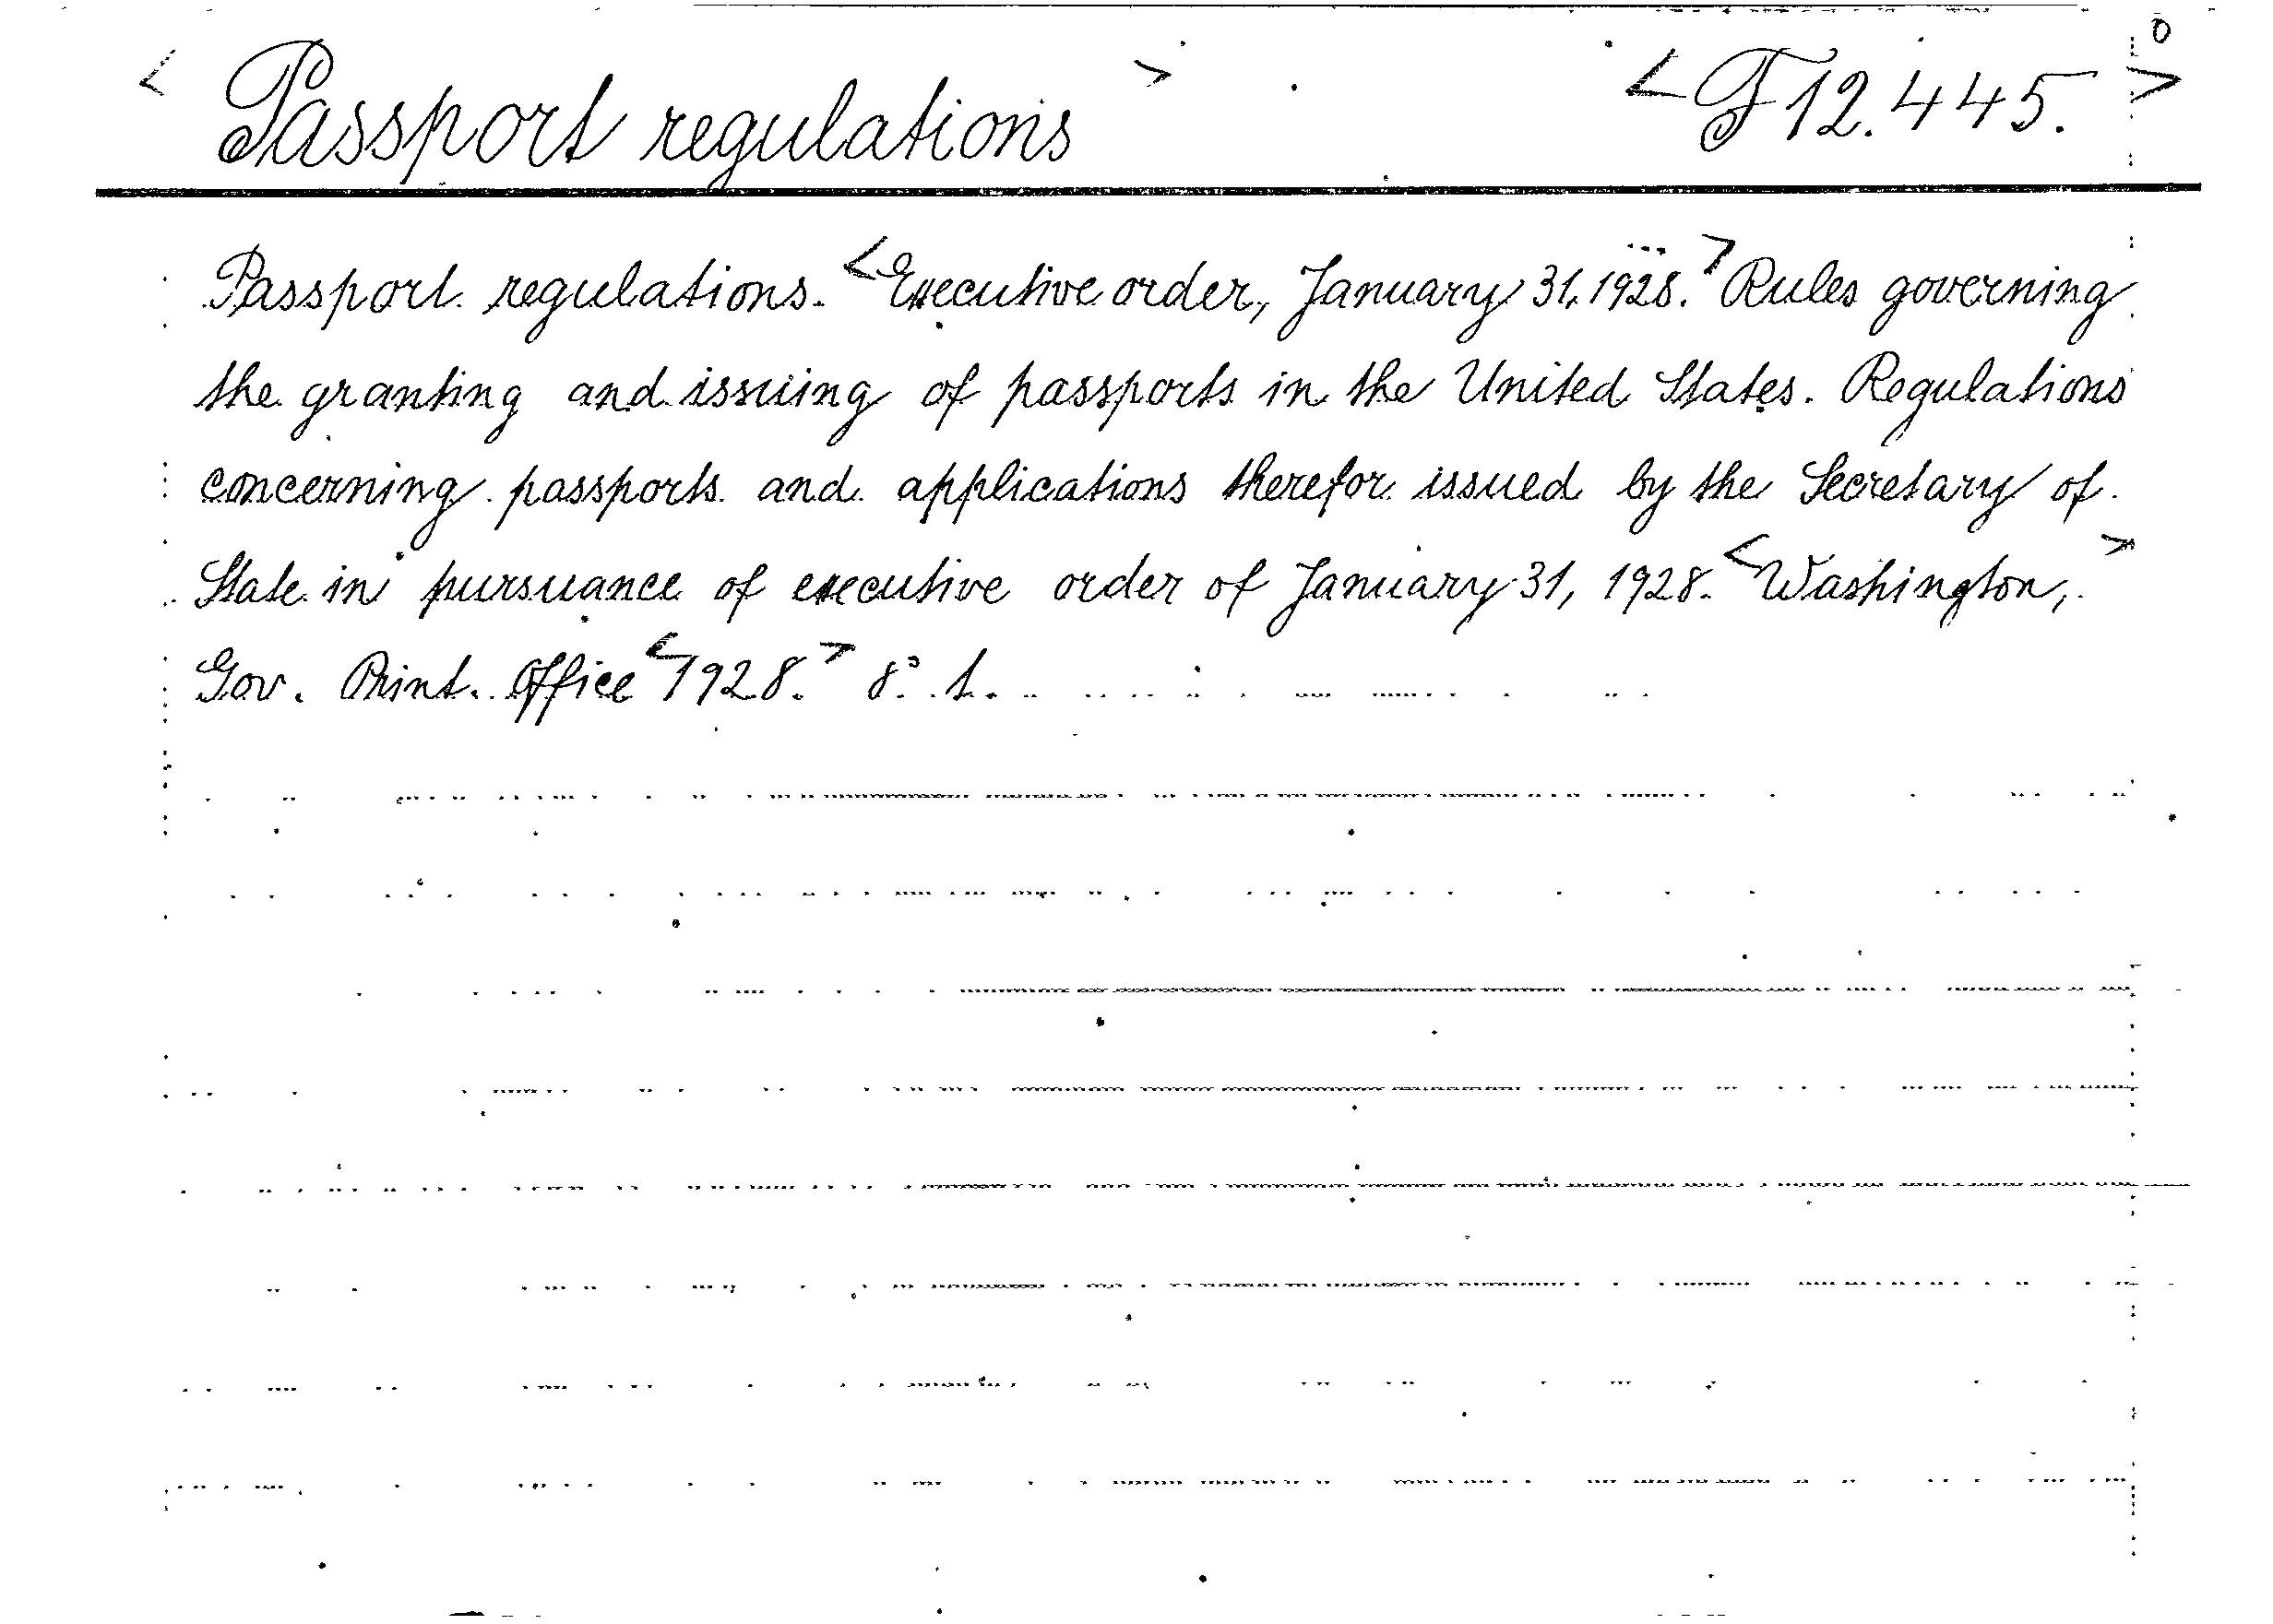 < Passport regulations > < F 12.445. >
Passport regulations. <Executive order, January 31, 1928.> Rules governing
the granting and issuing of passports in the United States. Regulations
concerning passports and applications therefor issued by the Secretary of
State in pursuance of executive order of January 31, 1928. <Washington, >
Gov. Print. Office <1928.> 8° 1.